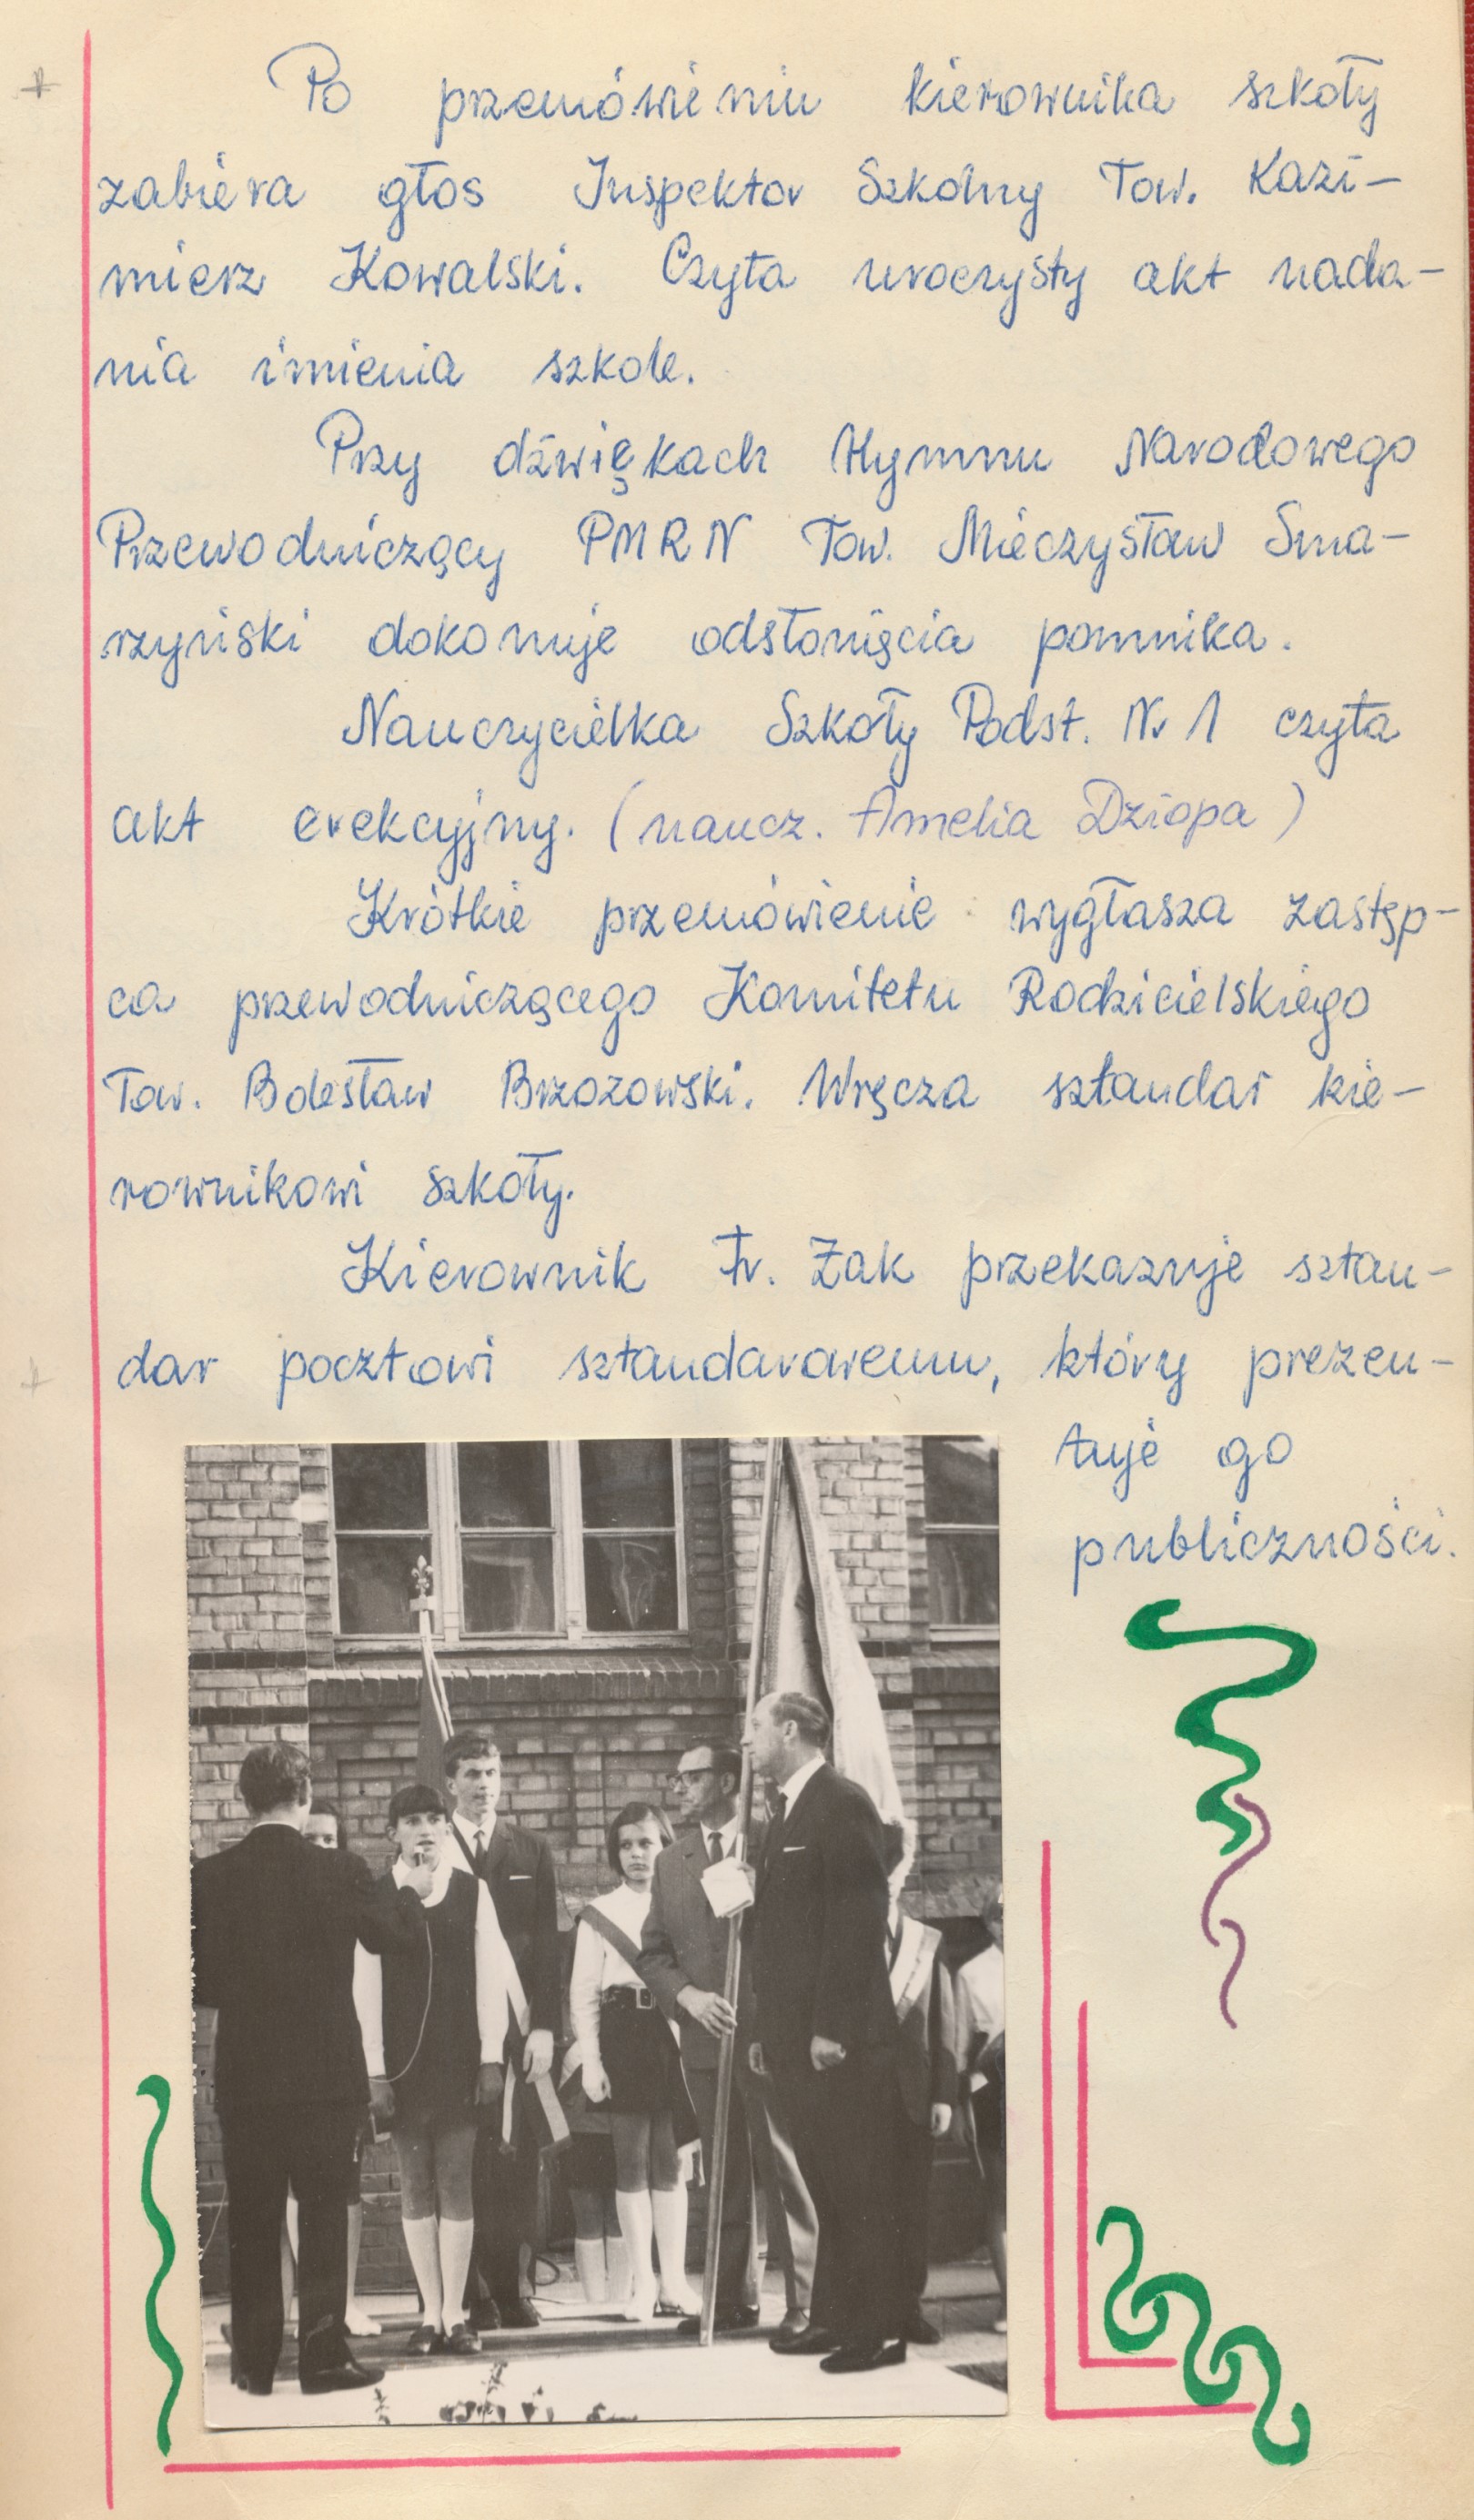 Po przemówieniu kierownika szkoły
zabiera głos Inspektor Szkolny Tow. Kazi-
mierz Kowalski. Czyta uroczysty akt nada-
nia imienia szkole.
Przy dźwiękach Hymnu Narodowego
Przewodniczący PMRN Tow. Mieczysław Sma-
rzyński dokonuje odsłonięcia pomnika.
Nauczycielka Szkoły Podst. Nr 1 czyta
akt erekcyjny. (naucz. Amelia Dziopa)
Krótkie przemówienie wygłasza zastęp-
ca przewodniczącego Komitetu Rodzicielskiego
Tow. Bolesław Brzozowski. Wręcza sztandar kie-
rownikowi szkoły.
Kierownik Fr. Żak przekazuje sztan-
dar pocztowi sztandarowemu, który prezen-
tuje go
publiczności.